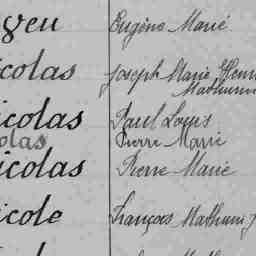 Eugène Marie
icolas Joseph Marie Henri
Mathurin
icolas Paul Louis
olas Pierre Marie
icolas Pierre Marie
icole François Mathurin J